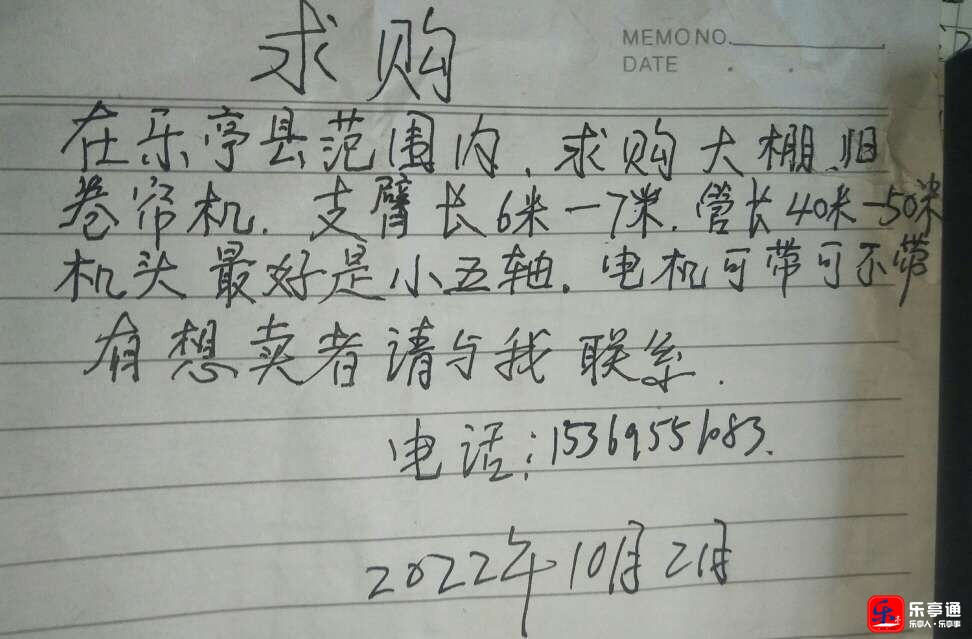 求购
MEMO NO.
DATE
在乐亭县范围内.求购大棚.旧
卷帘机.支臂长6米一7米.管长40米-50米
机头最好是小五轴.电机可带可不带
有想卖者请与我联系.
电话:15369551083.
2022年10月2日
乐亭通
乐亭人·乐亭事